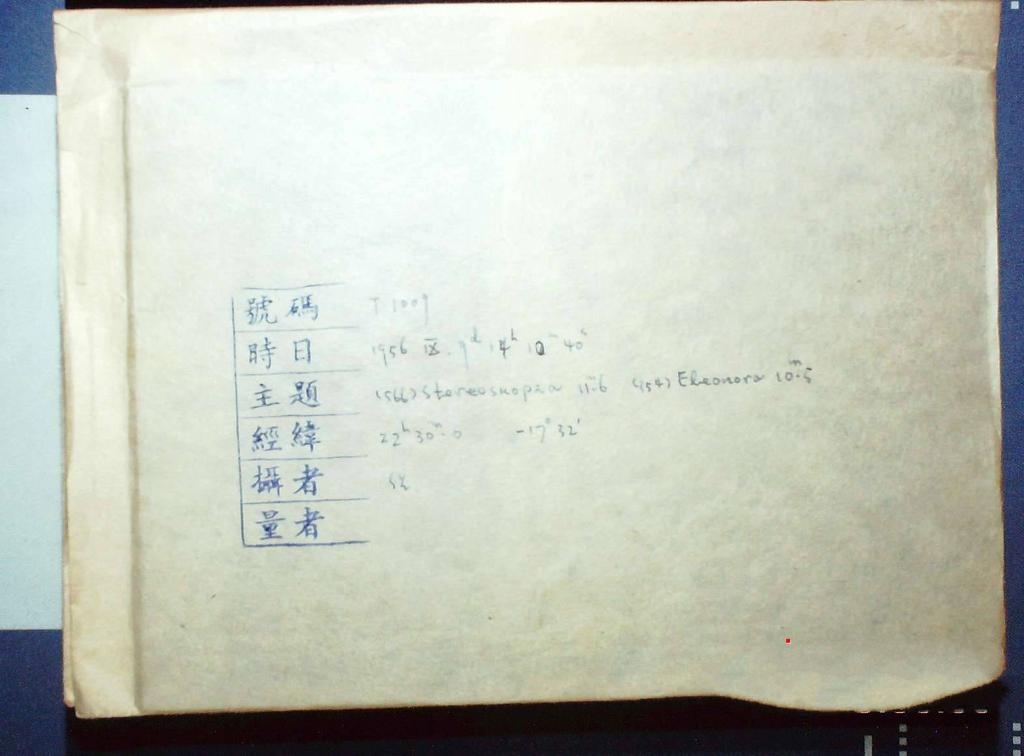 號碼 T 1009
時日 1956 IX. 9ᵈ 14ʰ 10ᵐ 40ˢ
主題 (566) Stereoskopia 11ᵐ.6 (354) Eleonora 10ᵐ.5
經緯 22ʰ 30ᵐ.0 -17° 32'
攝者
量者